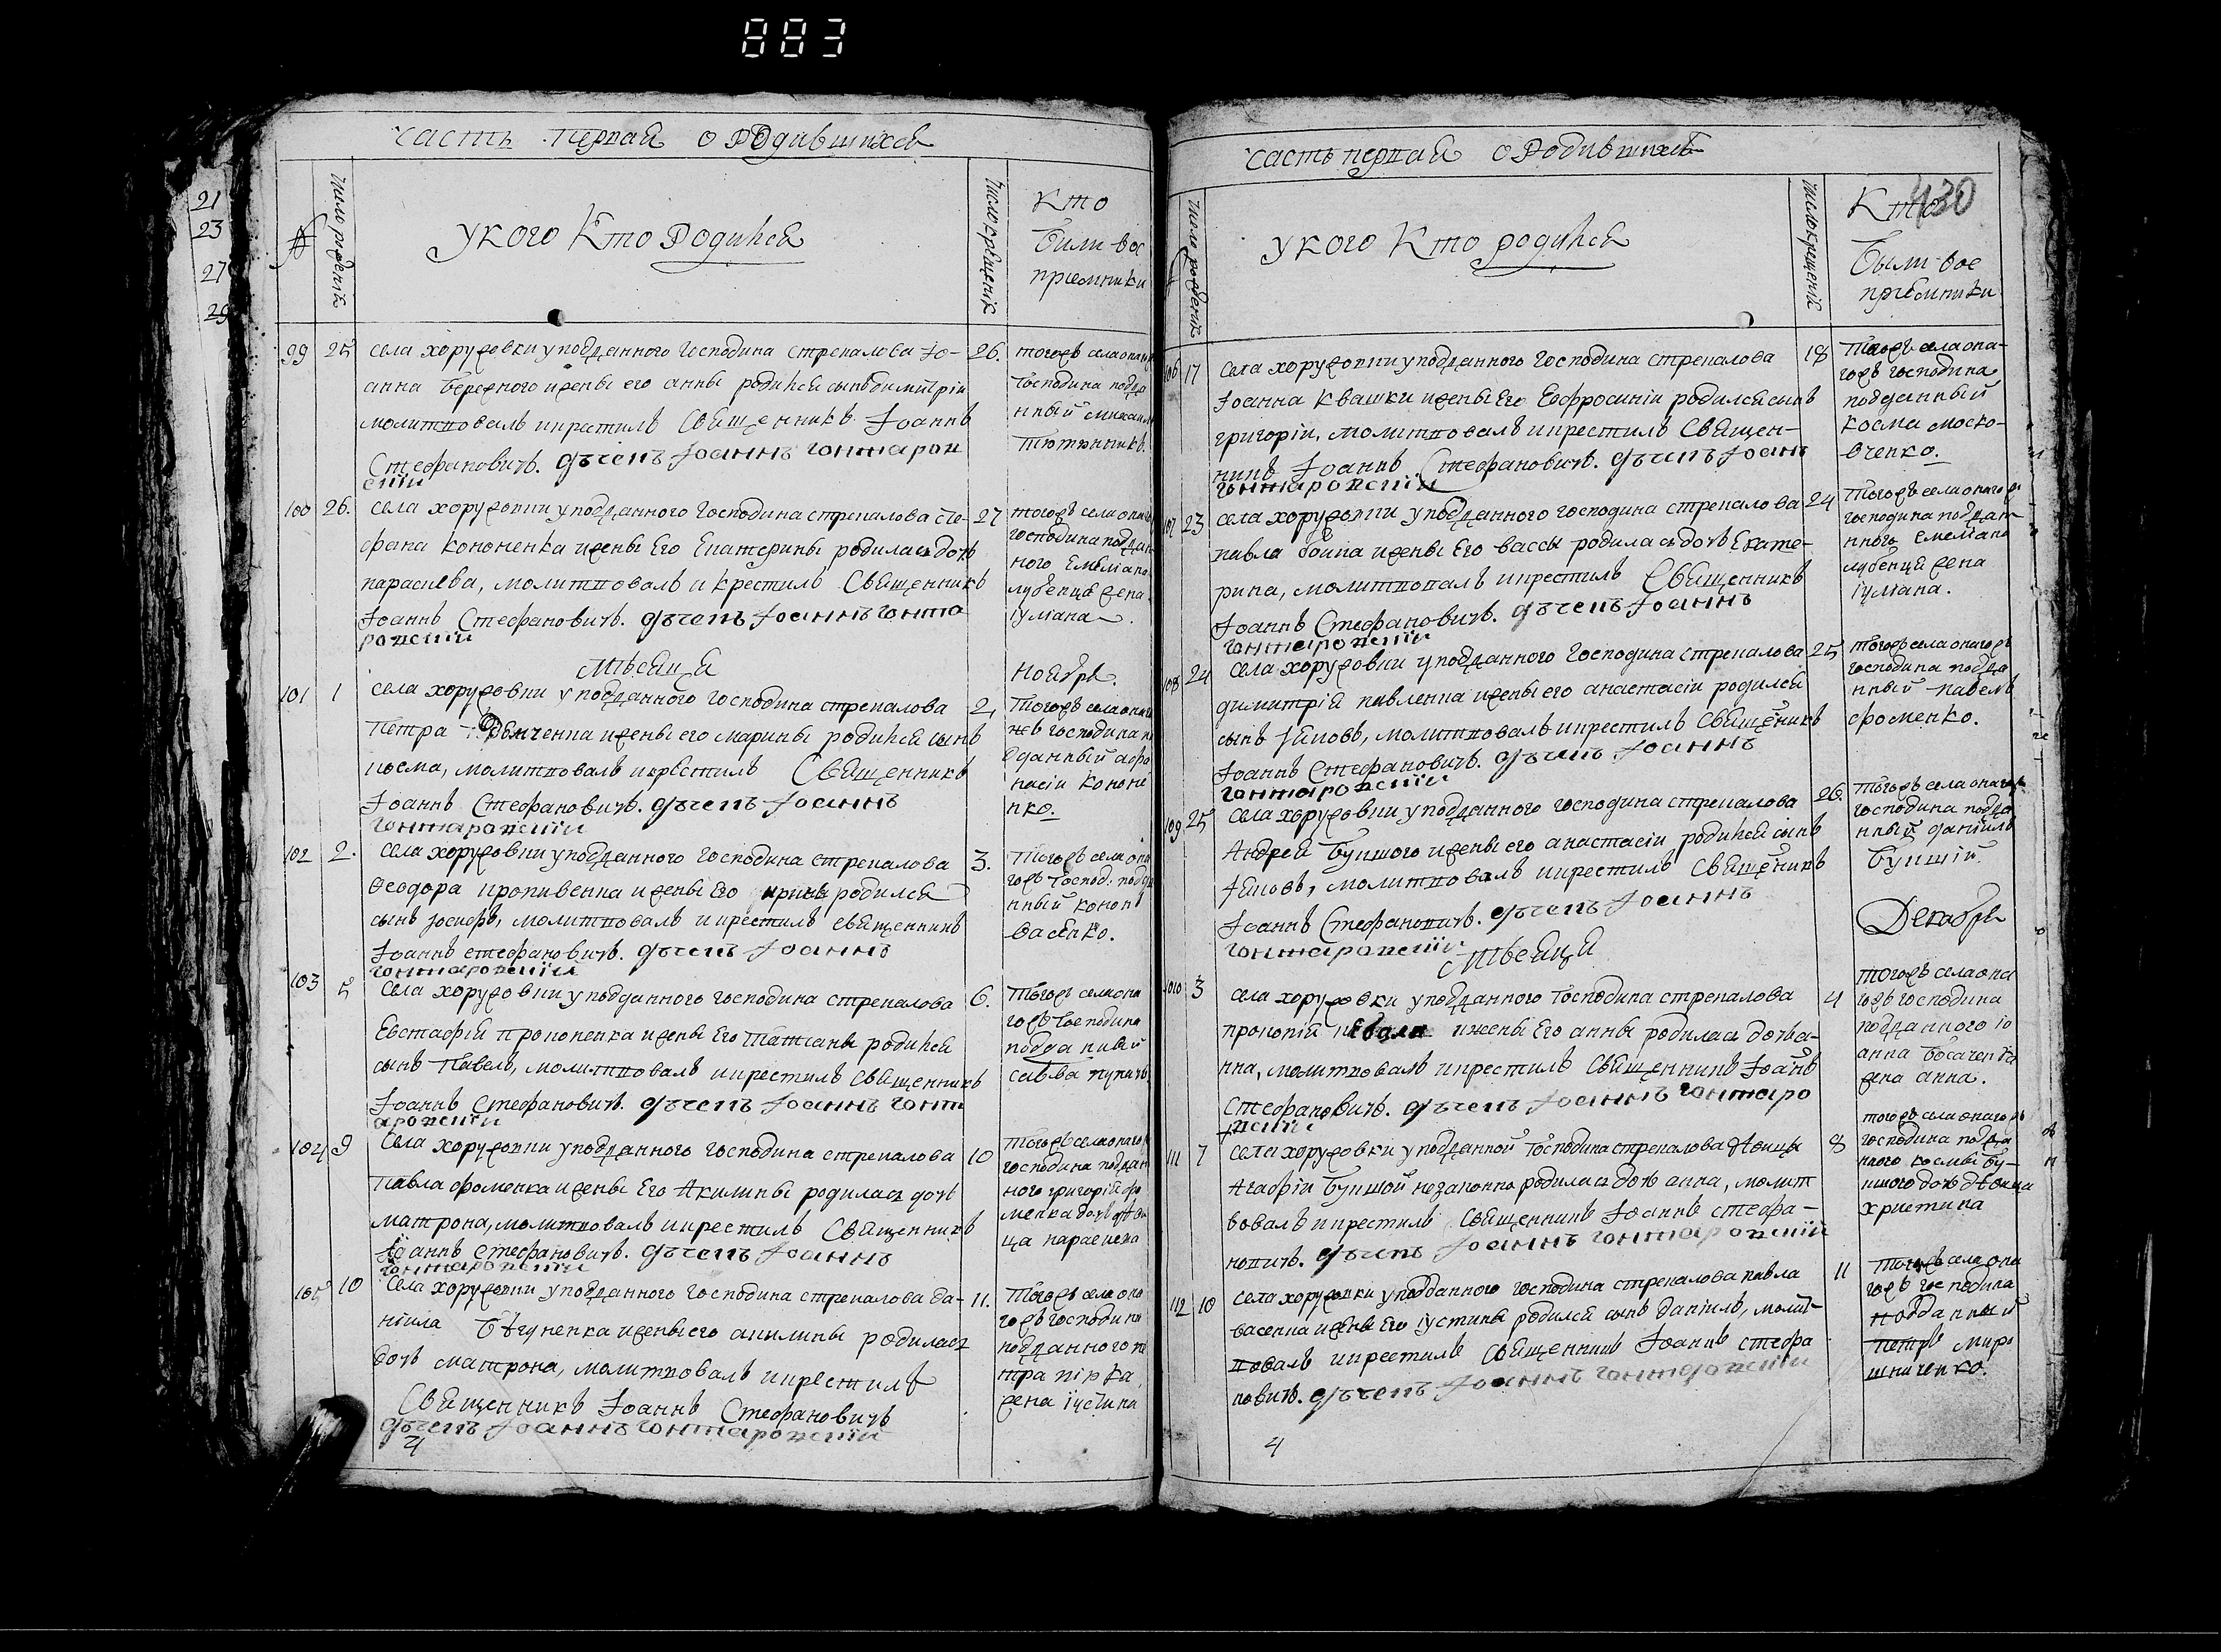 883
Часть первая о родившихся
№
Число рождения
У кого кто родился
Число крещения
Кто
были вос
приемники
99 25 села хоружовки у подданного господина стрепалова Ио- 26.
анна бережного и жены его анны родился сынъ димитрiи
молитвовалъ и крестилъ Священникъ Iоаннъ
Стефановичъ. дьячепъ Iоаннъ гонтаров
скiи
тогожъ села онаго
господина подда
нный михаил
тютюнникъ.
100 26. села хоружовки у подданного господина стрепалова сте- 27
фана кононенка и жены Его Екатерины родилась дочь
параскева, молитвовалъ и крестилъ Священникъ
Iоаннъ Стефановичъ. дьячепъ Iоаннъ гонта
ровскiи
тогожъ села онаго
господина поддан
ного Емелiана
лубенца жена
iулiана.
Мѣсяца Ноября.
101 1 села хоружовки у подданного господина стрепалова 2
Петра и жены его марины родился сынъ
косма, молитвовалъ и крестилъ Священникъ
Iоаннъ Стефановичъ. дьячепъ Iоаннъ
гонтаровскiи
тогожъ села онаго
жъ господина по
дданный афа
насiи кононе
нко.
102 2. села хоружовки у подданного господина стрепалова 3.
Феодора кропивенка и жены Его ирины родился
сынъ Iосифъ, молитвовалъ и крестилъ священникъ
Iоаннъ стефановичъ. дьячепъ Iоаннъ
гонтаровскiи
тогожъ села она
гожъ господ. подда
нный конон
васенко.
103 5 села хоружовки у подданного господина стрепалова 6.
Евстафiй прокопенка и жены Его Татiаны родился
сынъ Павелъ, молитвовалъ и крестилъ Священникъ
Iоаннъ Стефановичъ. дьячепъ Iоаннъ гонт
аровскiи
тогожъ села она
гожъ господина
подданный
савва
104 9 села хоружовки у подданного господина стрепалова 10
Павла фоменка и жены Его Акилины родилась дочь
матрона, молитвовалъ и крестилъ Священникъ
Iоаннъ Стефановичъ. дьячепъ Iоаннъ
гонтаровскiи
тогожъ села онаго
господина поддан
ного григорiй фо
менка дочь дѣви
ца параскева
105 10 села хоружовки у подданного господина стрепалова да- 11.
нiила Бѣгуненка и жены его акилины родилась
дочь матрона, молитвовалъ и крестилъ
Священникъ Iоаннъ Стефановичъ
дьячепъ Iоаннъ гонтаровскiи
тогожъ села она
гожъ господина
подданного пе
тра пiрка
жена iустина
4
Часть первая о родившихъ
430
Число рождения
У кого кто родился
Число крещения
Кто
были вос
приемники
106 17 села хоружовки у подданного господина стрепалова 18
Iоанна Квашки и жены Его Ефросинiи родился сынъ
григорiи, молитвовалъ и крестилъ Священ-
никъ Iоаннъ Стефановичъ. дьячепъ Iоанъ
гонтаровскiи
тогожъ села она-
гожъ господина
подданный
косма моско-
вченко.
107 23 села хоружовки у подданного господина стрепалова 24
павла и жены Его вассы родилась дочь Екате-
рина, молитвовалъ и крестилъ Священникъ
Iоаннъ Стефановичъ. дьячепъ Iоаннъ
гонтаровскiи
тогожъ села онагожъ
господина поддан-
нного Емелiана
лубенця жена
iулiана.
108 24 села хоружовки у подданного господина стрепалова 25
димитрiй павленка и жены его анастасiи родился
сынъ Iаковъ, молитвовалъ и крестилъ Священникъ
Iоаннъ Стефановичъ. дьячепъ Iоаннъ
гонтаровскiи
тогожъ села онагожъ
господина подда
нный павелъ
фоменко.
109 25 села хоружовки у подданного господина стрепалова 26.
Андрея Буцкого и жены его анастасiи родился сынъ
Iаковъ, молитвовалъ и крестилъ Священникъ
Iоаннъ Стефановичъ. дьячепъ Iоаннъ
гонтаровскiи
тогожъ села онагожъ
господина подда
нный данiилъ
Буцкiй.
Мѣсяца Декабря
1010 3 села хоружовки у подданного господина стрепалова 4
прокопiй и жены Его анны родилась дочь а-
нна, молитвовалъ и крестилъ Священникъ Iоаннъ
Стефановичъ. дьячепъ Iоаннъ гонтаро
вскiи
тогожъ села она
гожъ господина
подданного Iо
анна
жена анна.
111 7 села хоружовки у подданной господина стрепалова дѣвицы 8
Агафiи Буцкой незаконно родилась дочь анна, молит
вовалъ и крестилъ Священникъ Iоаннъ стефа-
новичъ. дьячепъ Iоаннъ гонтаровскiи
тогожъ села онагожъ
господина подда
нного космы Бу-
цкого дочь дѣвица
христина
112 10 села хоружовки у подданного господина стрепалова павла 11
васенка и жены Его iустины родился сынъ данiилъ, молит-
вовалъ и крестилъ Священникъ Iоаннъ стефа
новичъ. дьячепъ Iоаннъ гонтаровскiи
тогожъ села она
гожъ господина
подданный
петръ миро
шниченко.
4